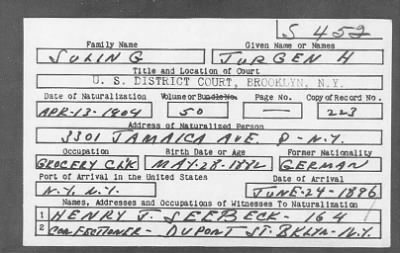 S 452
Family Name Given Name or Names
SULING JURGEN H
Title and Location of Court
U. S. DISTRICT COURT, BROOKLYN, N.Y.
Date of Naturalization Volume or Bundle No. Page No. Copy of Record No.
APR-13-1904 50 — 223
Address of Naturalized Person
3301 JAMAICA AVE. N.Y.
Occupation Birth Date or Age Former Nationality
GROCERY CLK MAY-28-1882 GERMAN
Port of Arrival in the United States Date of Arrival
N.Y. N.Y. JUNE-24-1896
Names, Addresses and Occupations of Witnesses To Naturalization
1 HENRY J. SEEBECK - 164
2 CONFECTIONER - DUPONT ST. BKLYN-N.Y.